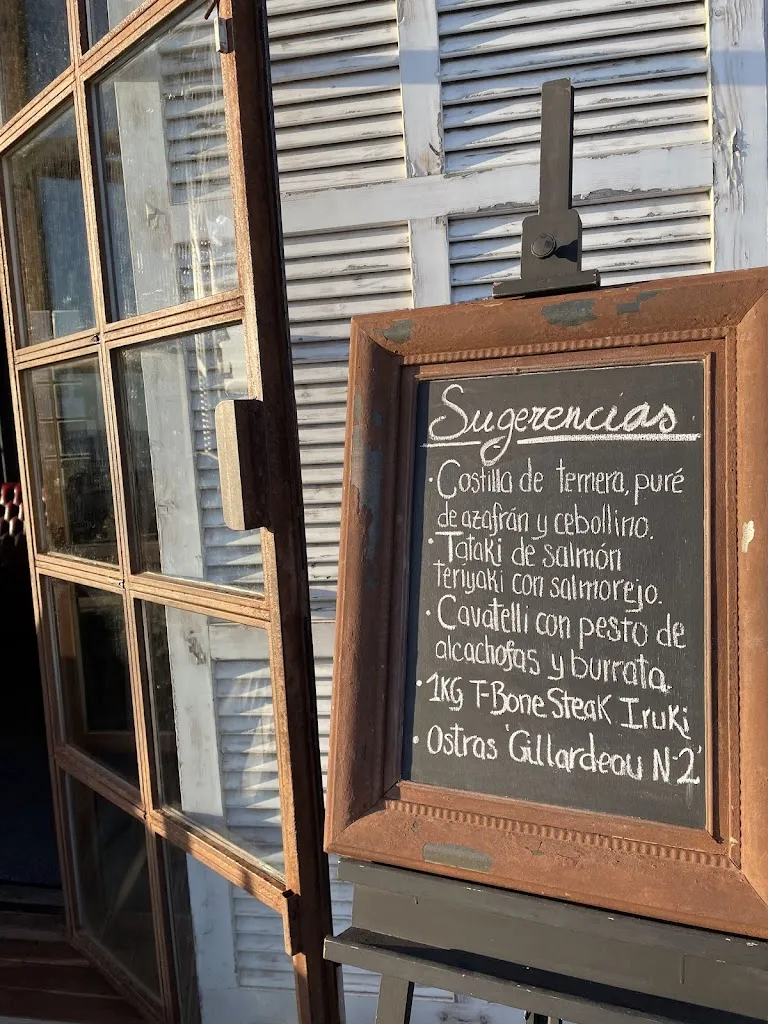 Sugerencias
· Costilla de ternera, puré
de azafrán y cebollino.
· Tataki de salmón
teriyaki con salmorejo.
· Cavatelli con pesto de
alcachofas y burrata.
· 1KG T-Bone Steak Iruki
· Ostras 'Gillardeau N·2'